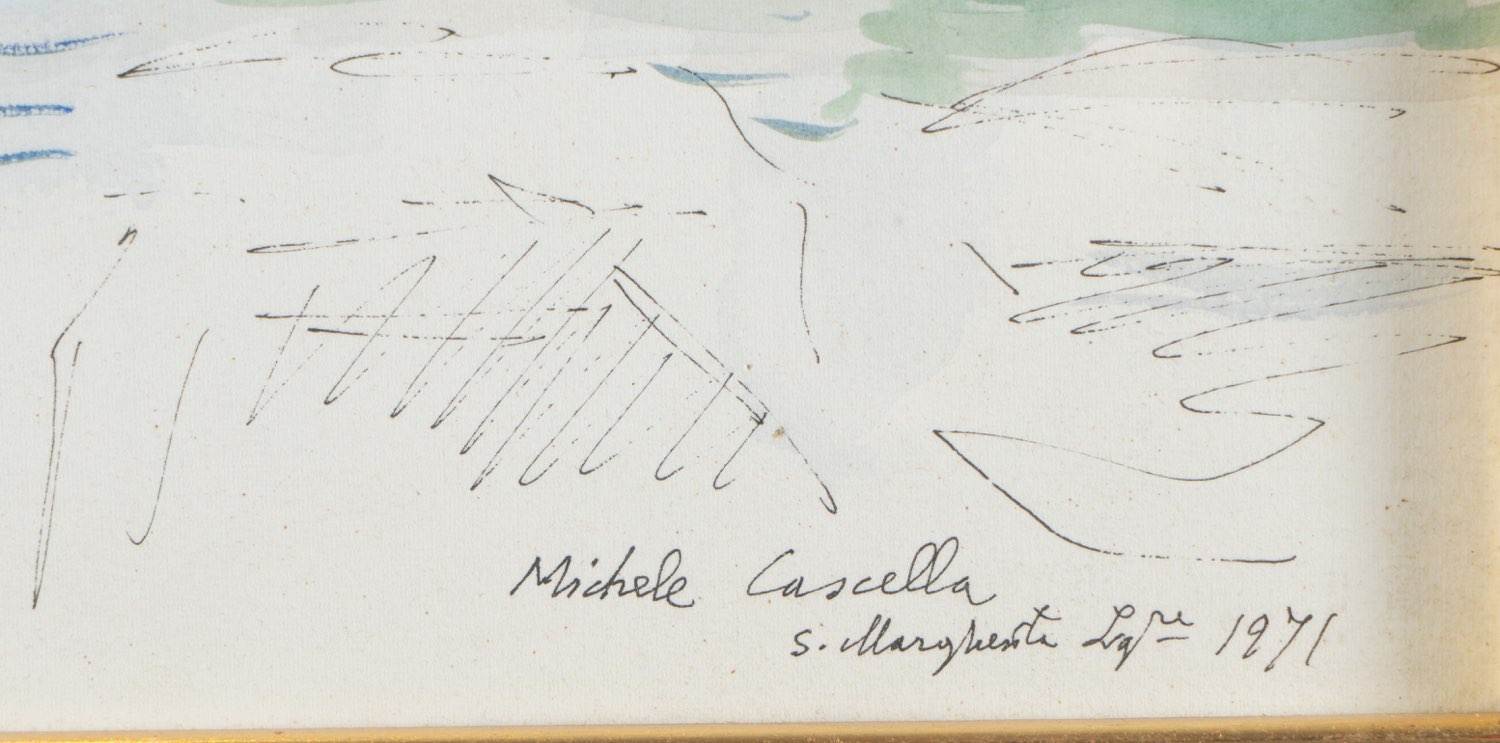 Michele Cascella
S. Margherita Lgre 1971